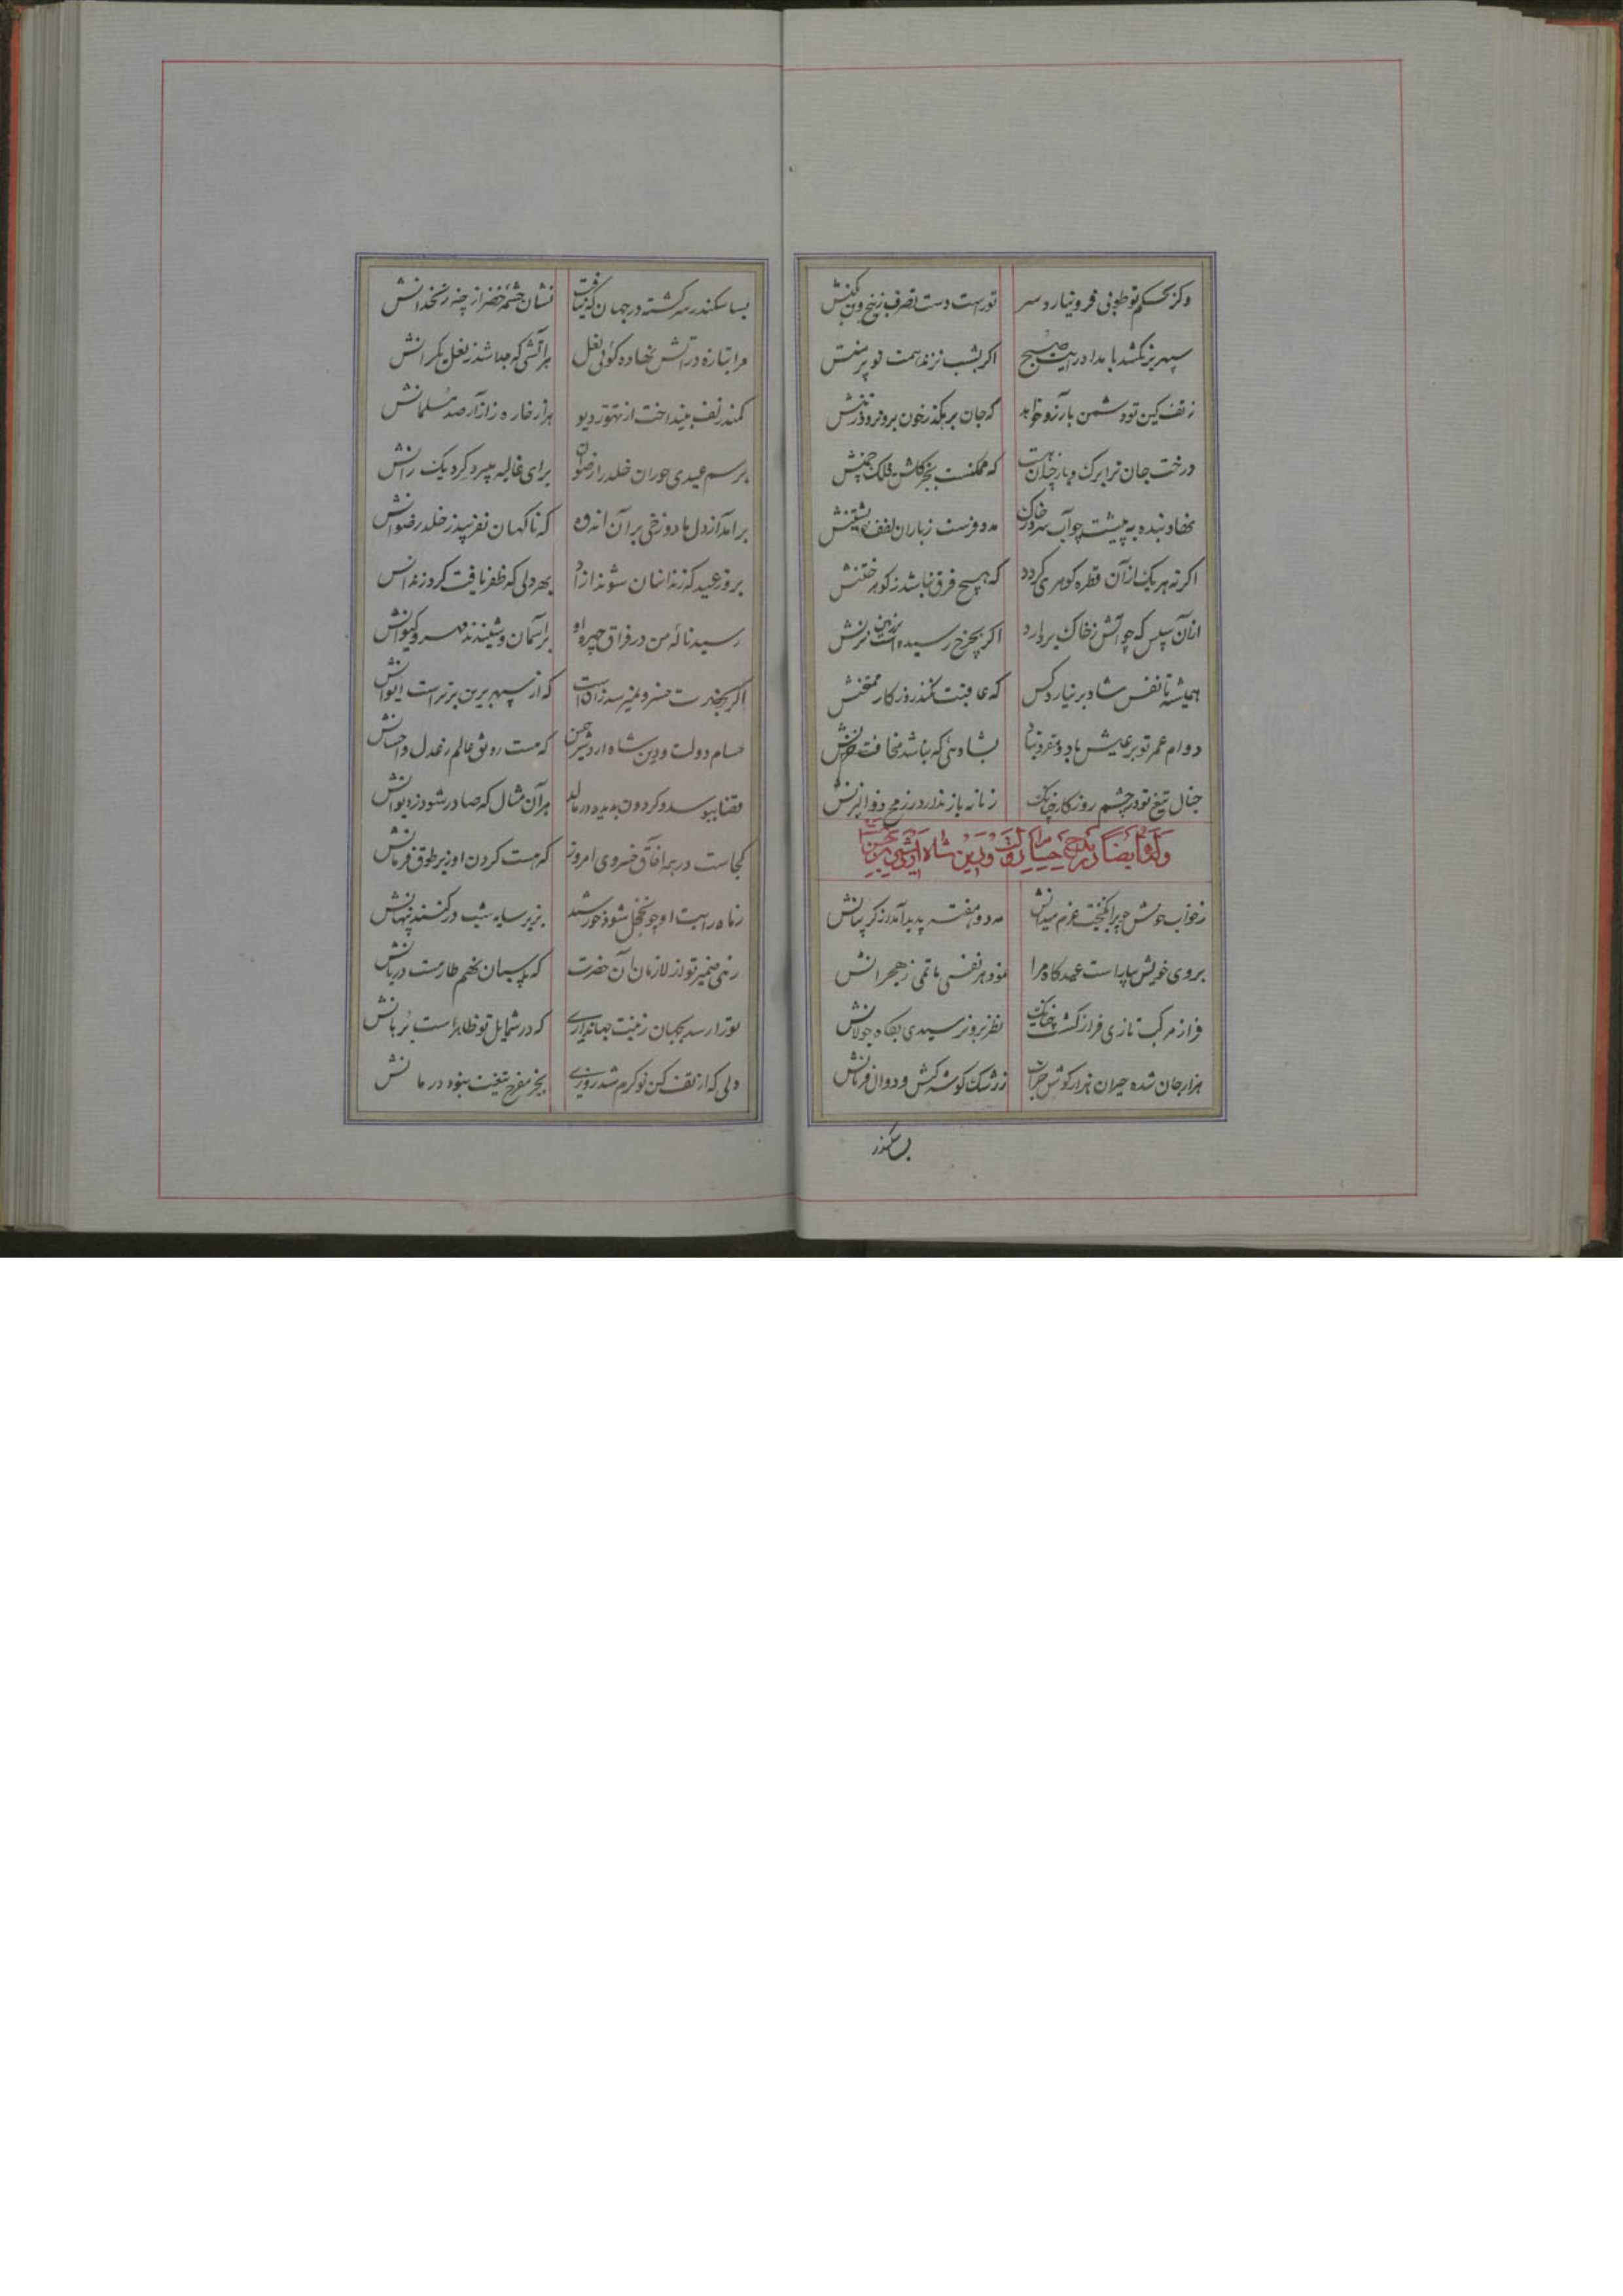 وکر بحکم تو طوبی فرو نیارد سر تو راست دست تصرف ز بیخ و بن بکنش
سپهر بر نکشد بامداد رایت صبح اکر بشب نزند همت تو پر منت
ز تف کین تو دشمن بآرزو خواهد که جان بر هکذر خون برون رود ز تنش
درخت جان ترا برک و بار چندان هست که ممکنست بجز کلشن فلک چمنش
نهاد بنده به پیشت چو آب سر در خاک مدد فرست ز باران لطف
اکر نه هر یک از آن قطره کوهری کردد که هیچ فرق نباشد ز کوهر
از آن سپس که چو آتش ز خاک بردارد اکر بچرخ رسیده است بر زمین بزنش
همیشه تا نفس شاد بر نیارد کس که عاقبت نکند روزکار ممتحنش
دوام عمر تو بر عیش باد و مقرون باد بشادئی که نباشد مخافت حزنش
خیال تیغ تو در چشم روزکار چنانک زمانه باز نداند ز رمح ذو الیزنش
وله ایضا در مدح حسام الدوله و دین شاه اردشیر بن حسن
ز خواب خوش چو برانکیخت عزم میدانش مه دو هفته پدید آمد از کریبانش
بروی خویش بیاراست عیدکاه مرا نمود هر نفسی ماتمی ز هجرانش
فراز مرکب تازی فراز کشت چنانک نظر برو نرسیدی بکاه جولانش
هزار جان شده حیران هزار کوش خزان ز زشک کوشه کش و دوان فرمانش
بسا سکندر
بسا سکندر سرکشته در جهان که نیافت نشان چشمه خضر از چه زنخدانش
مرا بتازه در آتش نهاده کوئی نعل هر آتشی که جدا شد ز نعل یکرانش
کمند زلف بینداخت از تهور دیو هزار خار ه ز آزار صد مسلمانش
برسم عیدی حوران خلد را رضوان برای غالیه میبرد کرد یکرانش
برآمد از دل ما دوزخی بر آن اندوه که ناکهان نفریبد ز خلد رضوانش
بروز عید که زندانیان شوند آزاد بهر دلی که ظفر یافت کرد زندانس
رسید ناله من در فراق چهره او بر آسمان و شنیدند مهر و کیوانش
اکر بحضرت خسرو نمیرسد زان است که از سپهر برین برتر است ایوانش
حسام دولت و دین شاه اردشیر حسن که هست رونق عالم ز عدل و احسانش
قضا ببوسد و کردون بدیده در مالد هر آن مثال که صادر شود ز دیوانش
کجاست در همه آفاق خسروی امروز که هست کردن او زیر طوق فرمانش
ز ماه رایت او چون خجل شود خورشید بزیر سایه شب در کنند پنهانش
زهی ضمیر تو از لازمان آن حضرت که پاسبان نهم طارمست دربانش
تو را رسد بجهان زینت جهانداری که در شمایل تو ظاهر است برهانش
دلی که از تف کین تو کرم شد روزی بجز مفرح تیغت نبود درمانش